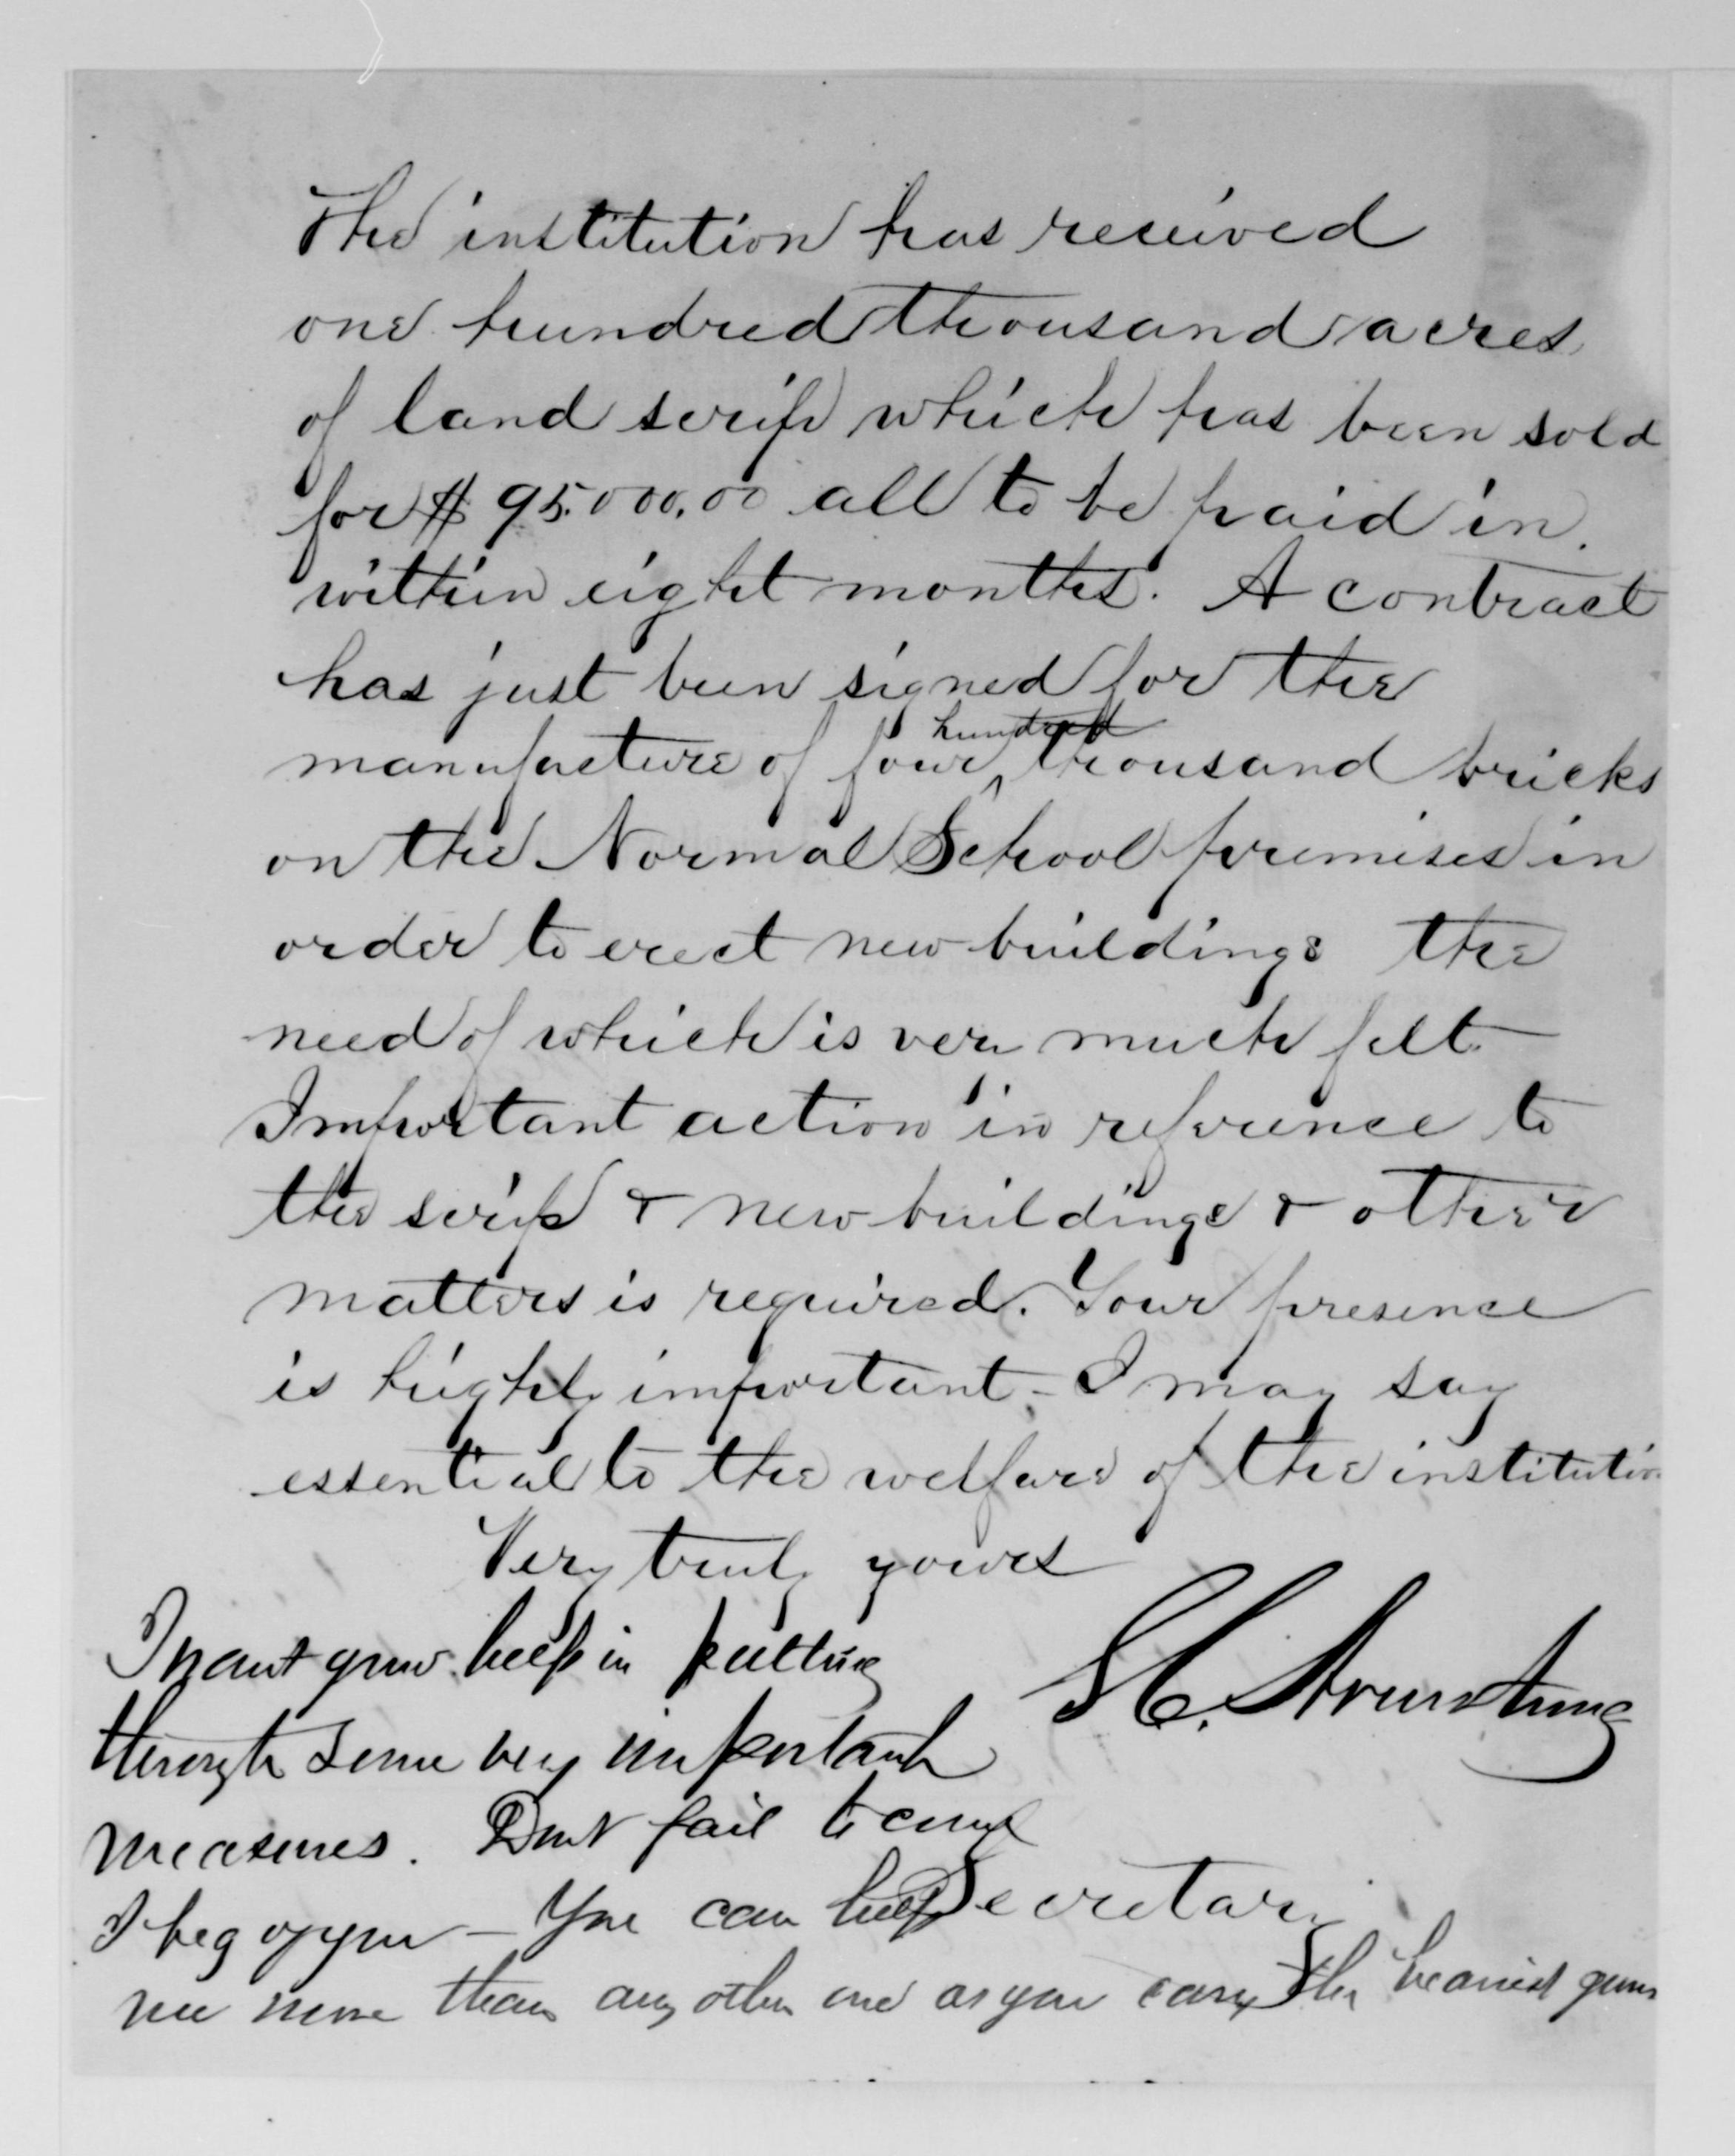 The institution has received
one hundred thousand acres
of land scrip which has been sold
for $95.000.00 all to be paid in
within eight months. A contract
has just been signed for the
hundred
manufacture of four ^ thousand bricks
on the Normal School premises in
order to erect new buildings the
need of which is very much felt
Important action in reference to
the scrip & new buildings & other
matters is required. Your presence
is highly important - I may say
essential to the welfare of the institution
Very truly yours
S. C. Armstrong
I want your help in putting
through some very important
measures. Dont fail to come
Secretary
I beg of you - You can help
me more than any other one as you carry the heaviest guns